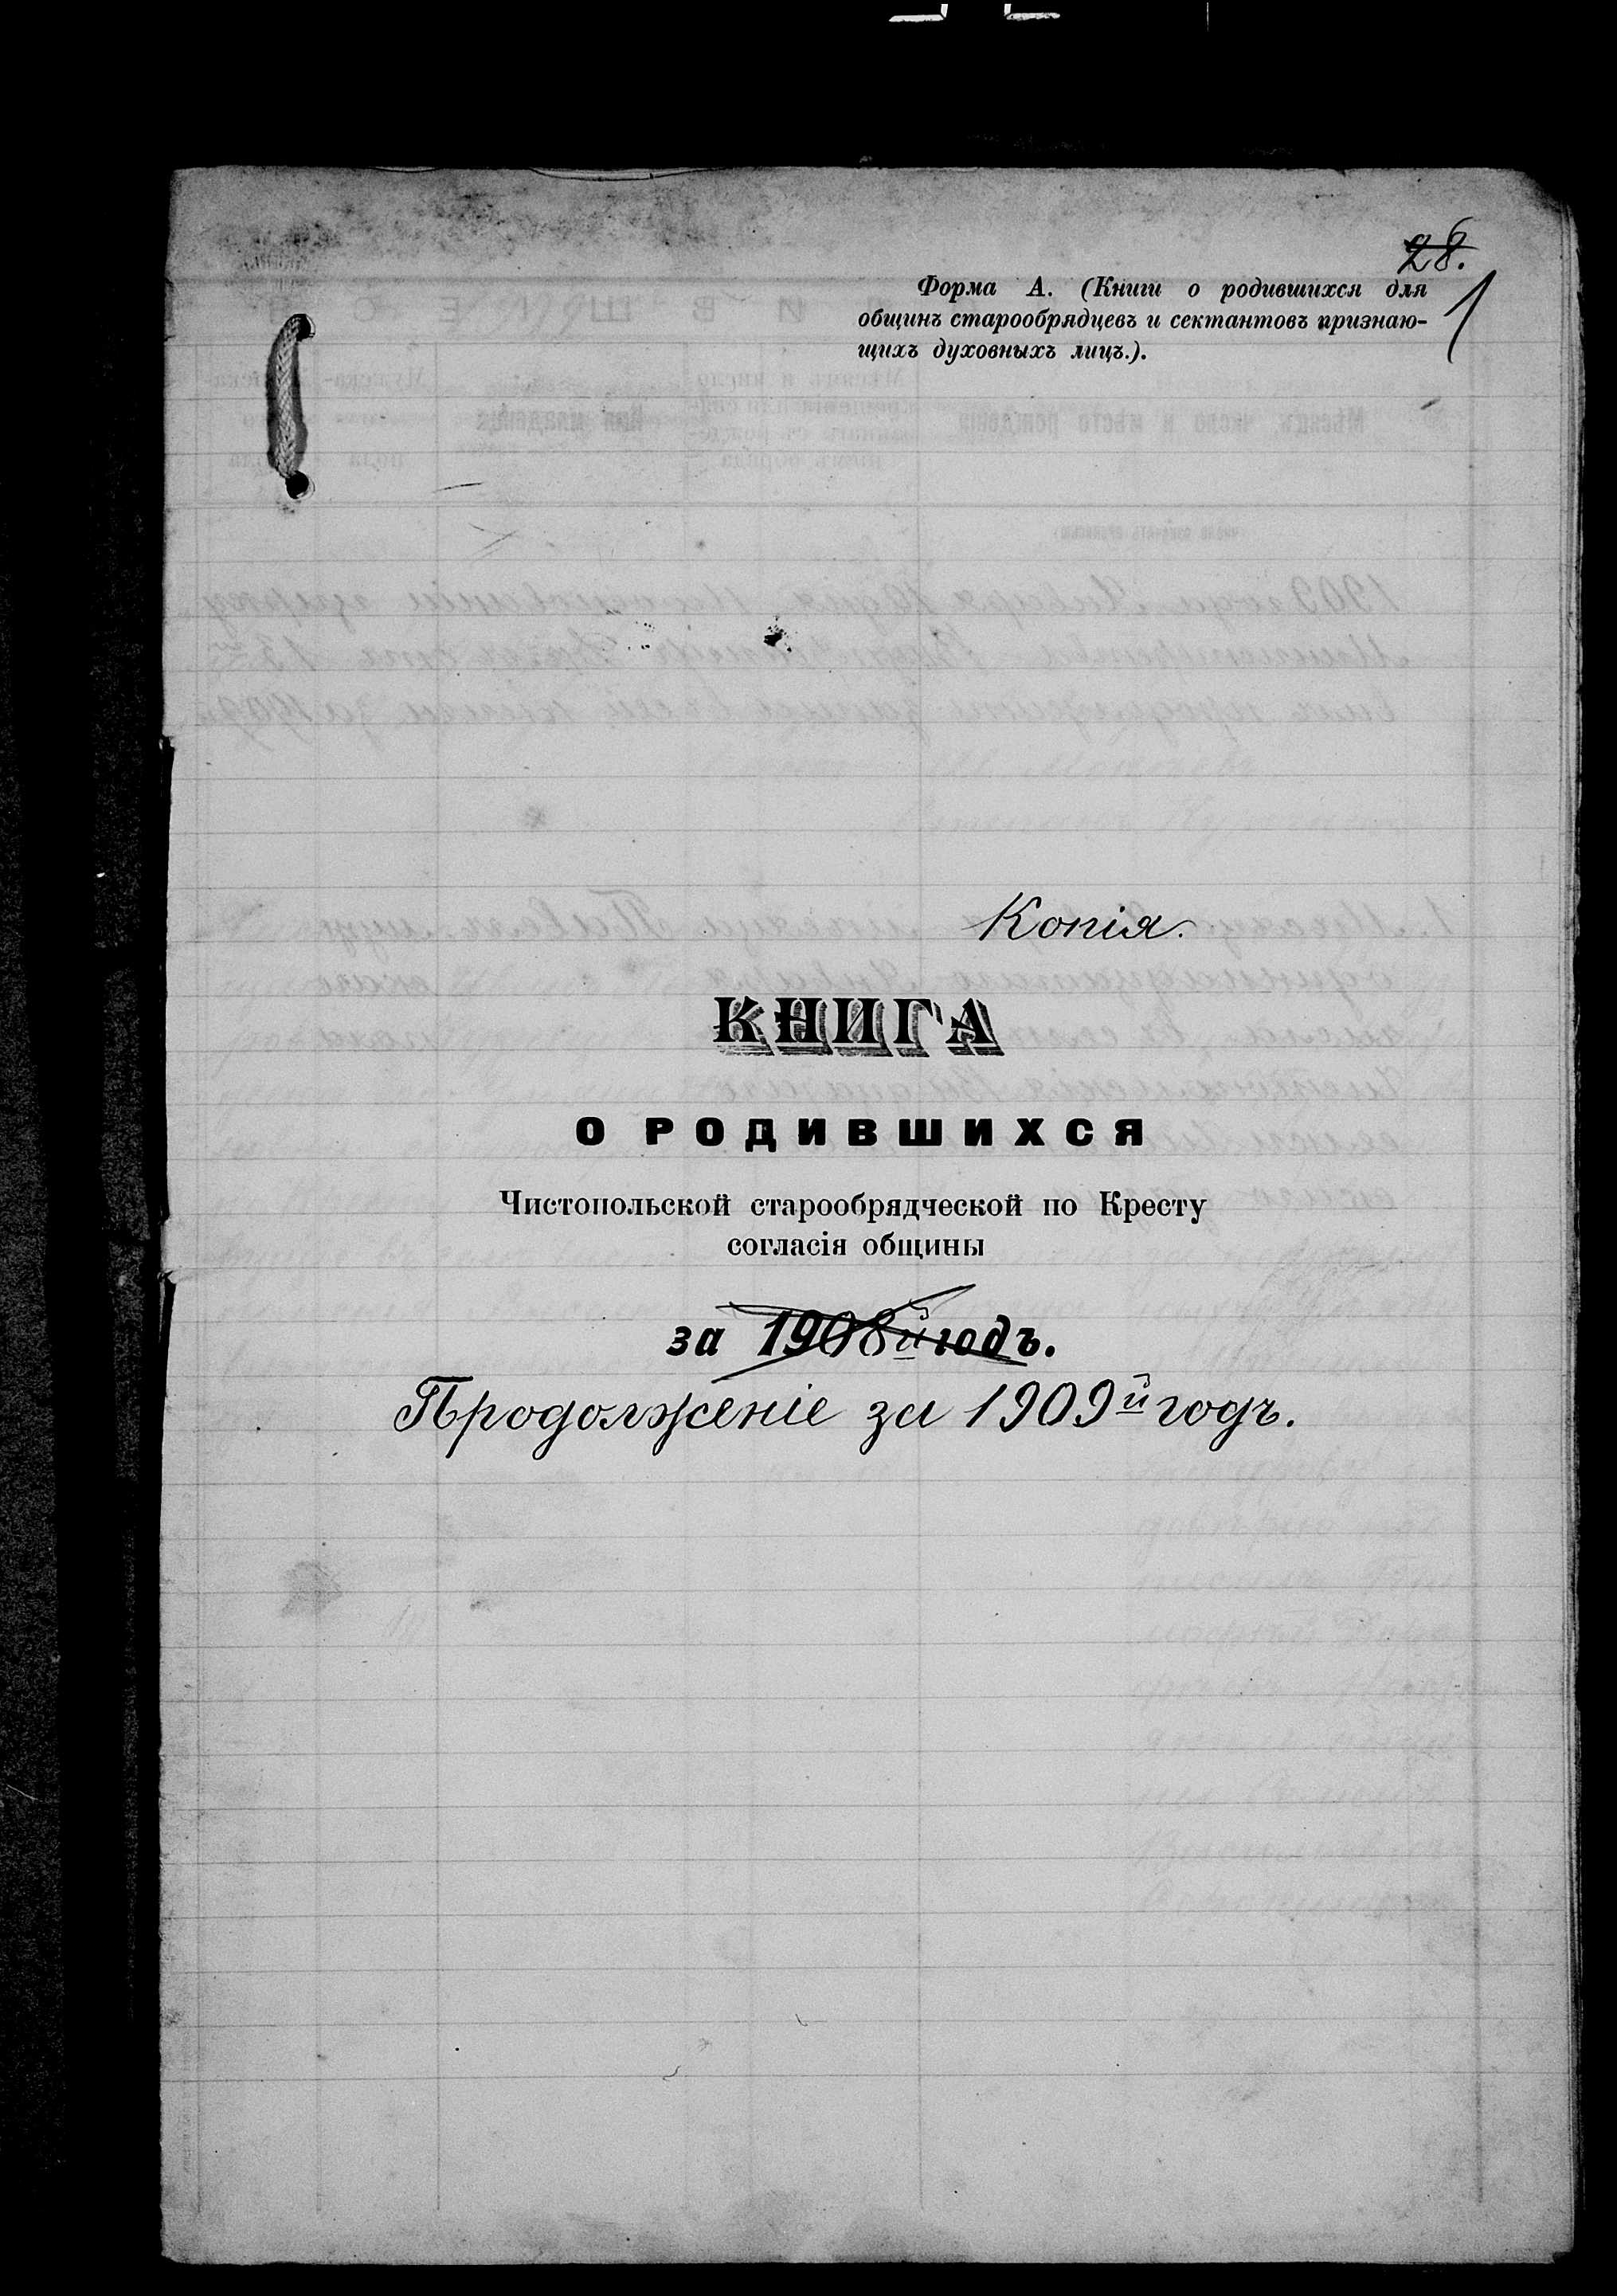 28.
1
Форма А. (Книги о родившихся для
общинъ старообрядцевъ и сектантовъ признаю-
щихъ духовныхъ лицъ.).
Копія.
КНИГА
О РОДИВШИХСЯ
Чистопольской старообрядческой по Кресту
согласія общины
за 1908й годъ.
Продолженіе за 1909й годъ.